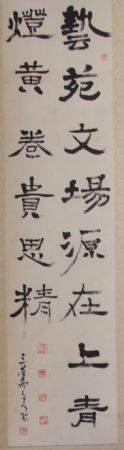 藝苑文場源在上青
燈黃卷貴思精